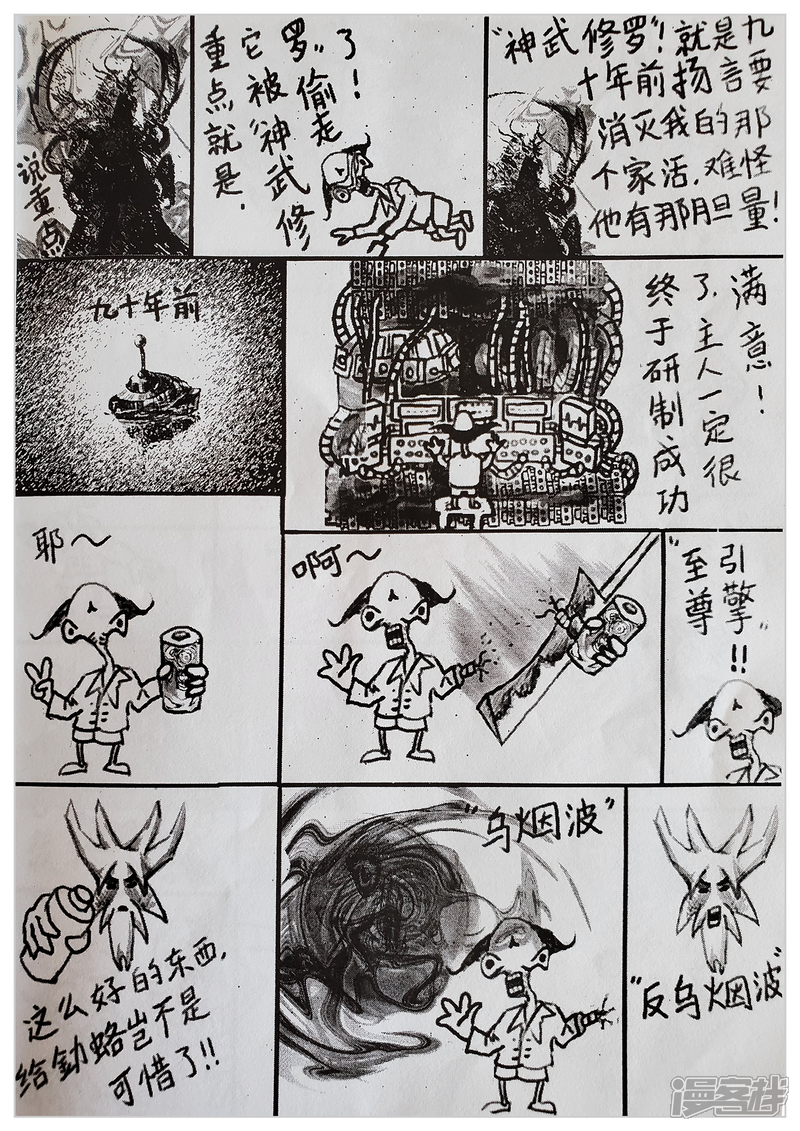 说重点
重点就是，
它被“神武修
罗”偷走
了！
“神武修罗”！就是九
十年前扬言要
消灭我的那
个家活，难怪
他有那胆量！
九十年前
终于研制成功
了，主人一定很
满意！
耶～
啊～
“至尊
引擎”!!
这么好的东西，
给釛蛒岂不是
可惜了!!
“乌烟波”
“反乌烟波”
漫客栈